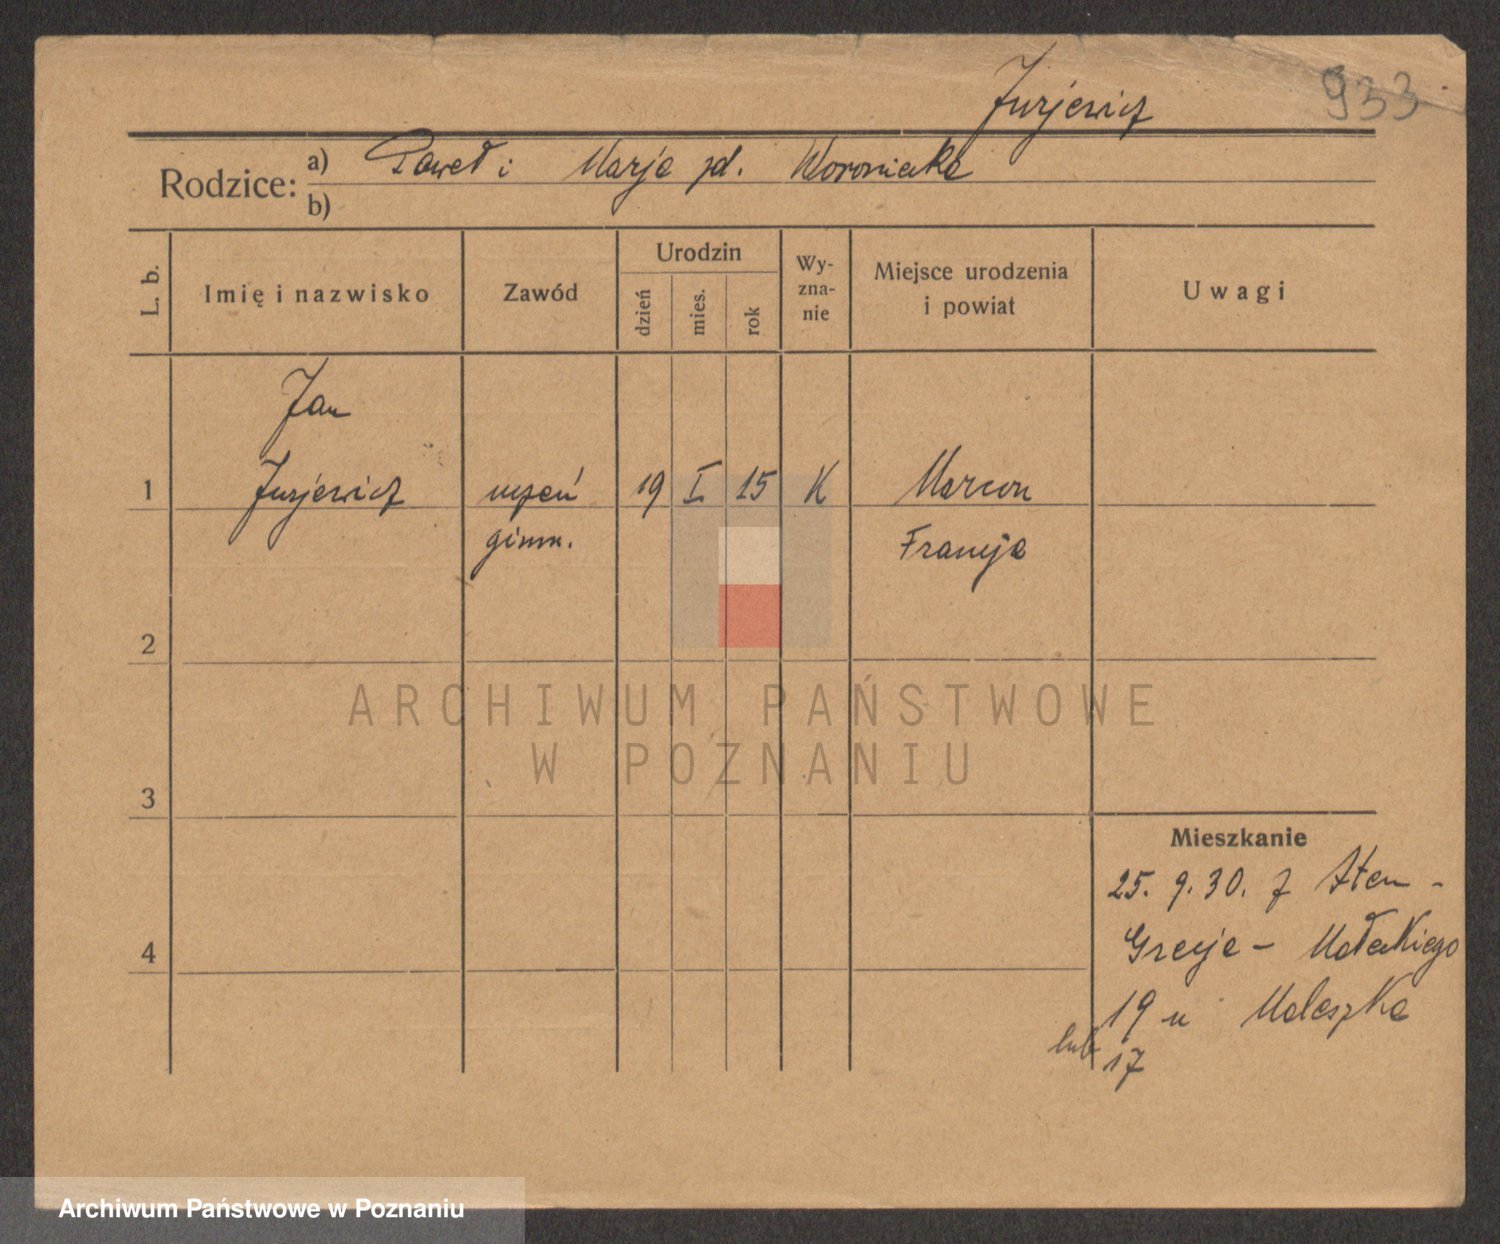 Jurjewicz
933
Rodzice:
a) Paweł i Marja zd. Woroniecka
b)
L. b.
Imię i nazwisko
Zawód
Urodzin
dzień
mies.
rok
Wy-
zna-
nie
Miejsce urodzenia
i powiat
Uwagi
Jan
1 Jurjewicz uczeń 19 I 15 K Marcon
gimn. Francja
2
3
4
Mieszkanie
25. 9. 30. z Aten -
Grecja - Małeckiego
19 u Maleszka
lub 17
ARCHIWUM PAŃSTWOWE
W POZNANIU
Archiwum Państwowe w Poznaniu